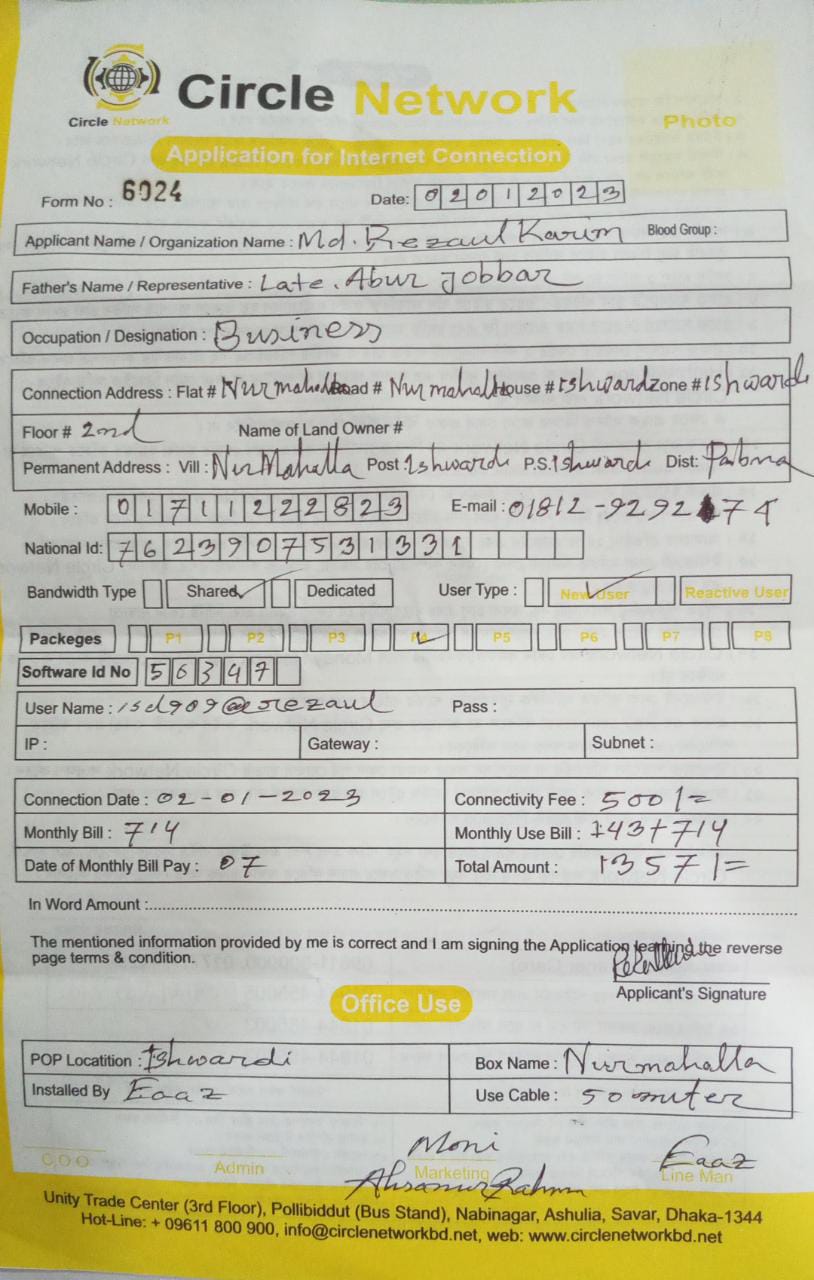 Circle Network
Circle Network
Photo
Application for Internet Connection
Form No : 6024
Date: 02012023
Applicant Name / Organization Name : Md. Rezaul Karim Blood Group :
Father's Name / Representative : Late. Abur Jobbar
Occupation / Designation : Business
Connection Address : Flat # Nurmahalla Road # Nurmahalla House # Ishwardi Zone # Ishwardi
Floor # 2nd Name of Land Owner #
Permanent Address : Vill : Nur Mahalla Post : Ishwardi P.S. Ishwardi Dist: Pabna
Mobile : 01711222823 E-mail : 01812-9292 74
National Id: 7623907531331
Bandwidth Type Shared Dedicated User Type : New User Reactive User
Packeges P1 P2 P3 P4 P5 P6 P7 P8
Software Id No 56347
User Name : isd909@rezaul Pass :
IP : Gateway : Subnet :
Connection Date : 02-01-2023 Connectivity Fee : 500/=
Monthly Bill : 714 Monthly Use Bill : 143+714
Date of Monthly Bill Pay : 07 Total Amount : 1357/=
In Word Amount :
The mentioned information provided by me is correct and I am signing the Application learning the reverse
page terms & condition.
Applicant's Signature
Office Use
POP Locatition : Ishwardi Box Name : Nurmahalla
Installed By Eaaz Use Cable : 50 miter
Moni Eaaz
C.O.O Admin Marketing Line Man
Unity Trade Center (3rd Floor), Pollibiddut (Bus Stand), Nabinagar, Ashulia, Savar, Dhaka-1344
Hot-Line: + 09611 800 900, info@circlenetworkbd.net, web: www.circlenetworkbd.net